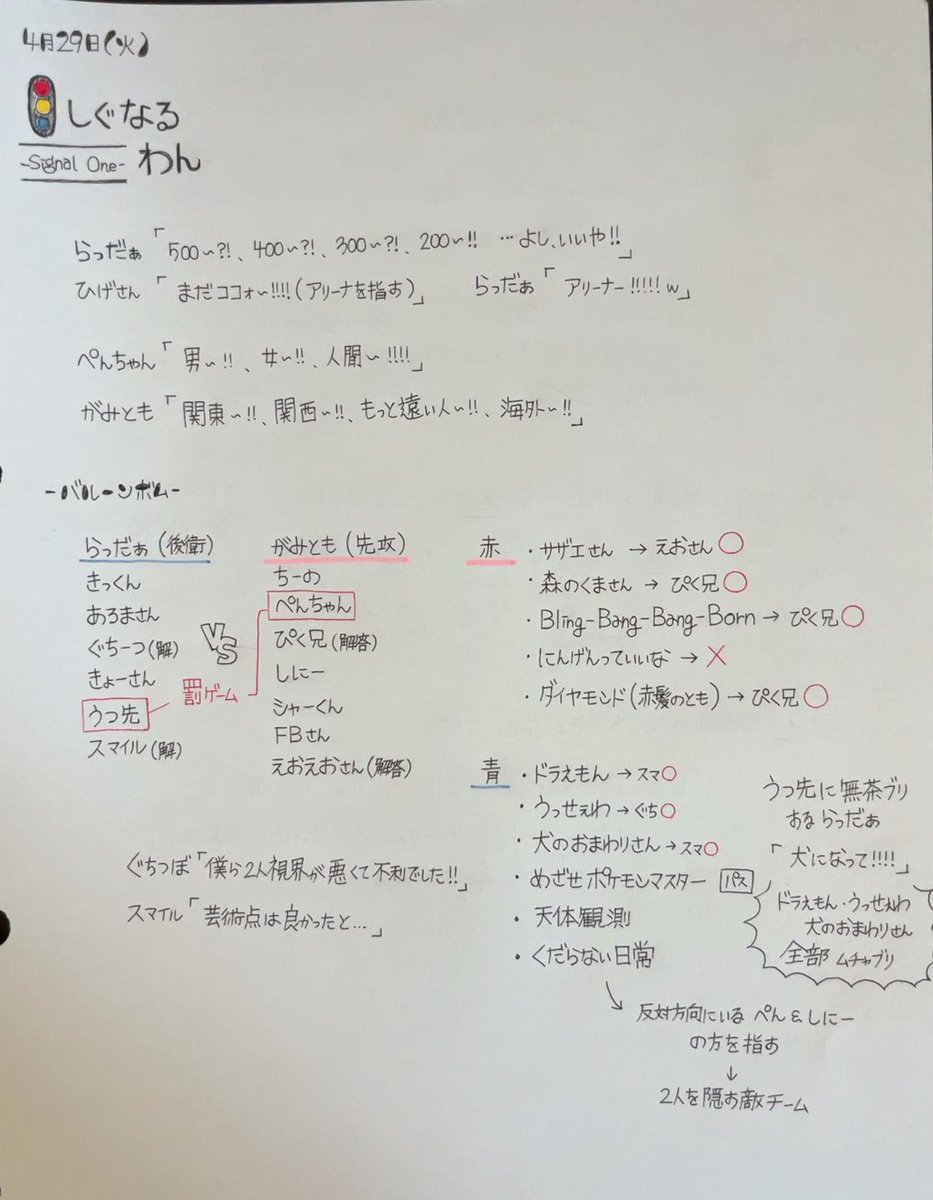 4月29日(火)
しぐなる
-Signal One- わん
らっだぁ「500～?!、400～?!、300～?!、200～!! …よし、いいや!!」
ひげさん「まだココォ～!!!!(アリーナを指す)」 らっだぁ「アリーナー!!!!!w」
ぺんちゃん「男～!!、女～!!、人間～!!!!」
がみとも「関東～!!、関西～!!、もっと遠い人～!!、海外～!!」
-バルーンボム-
らっだぁ(後衛)
きっくん
あろまさん
ぐちーつ(解)
きょーさん
うつ先
スマイル(解)
VS
罰ゲーム
がみとも(先攻)
ちーの
ぺんちゃん
ぴく兄(解答)
しにー
シャーくん
FBさん
えおえおさん(解答)
赤 ・サザエさん → えおさん ○
・森のくまさん → ぴく兄 ○
・Bling-Bang-Bang-Born → ぴく兄 ○
・にんげんっていいな → ×
・ダイヤモンド(赤髪のとも) → ぴく兄 ○
青 ・ドラえもん → スマ○
・うっせぇわ → ぐち○
・犬のおまわりさん → スマ○
・めざせポケモンマスター パス
・天体観測
・くだらない日常
↘
反対方向にいる ぺん&しにー
の方を指す
↓
2人を隠す敵チーム
うつ先に無茶ブリ
するらっだぁ
「犬になって!!!!」
ドラえもん・うっせぇわ
犬のおまわりさん
全部ムチャブリ
ぐちつぼ「僕ら2人視界が悪くて不利でした!!」
スマイル「芸術点は良かったと…」